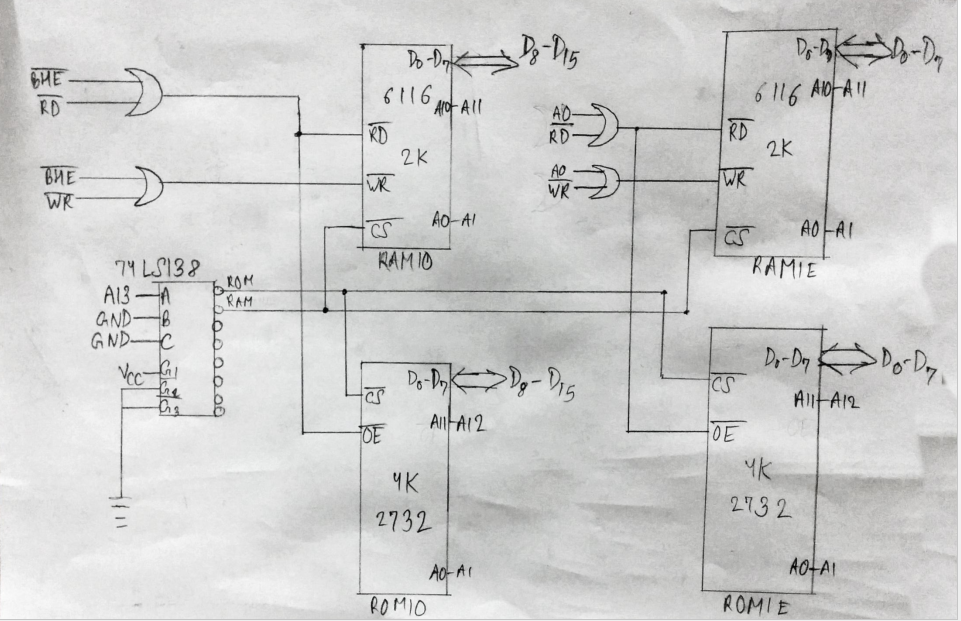 B̅H̅E̅
R̅D̅
B̅H̅E̅
W̅R̅
D0-D7
D8-D15
6116
A10
A11
R̅D̅
2K
W̅R̅
C̅S̅
A0
A1
RAM10
A0
R̅D̅
A0
W̅R̅
D0-D7
6116
A10
A11
R̅D̅
2K
W̅R̅
C̅S̅
A0
A1
RAM1E
74LS138
A13
A
GND
B
GND
C
VCC
G1
ROM
RAM
D0-D7
D8-D15
C̅S̅
A11
A12
O̅E̅
4K
2732
A0
A1
ROM10
D0-D7
D0-D7
C̅S̅
A11
A12
O̅E̅
4K
2732
A0
A1
ROM1E